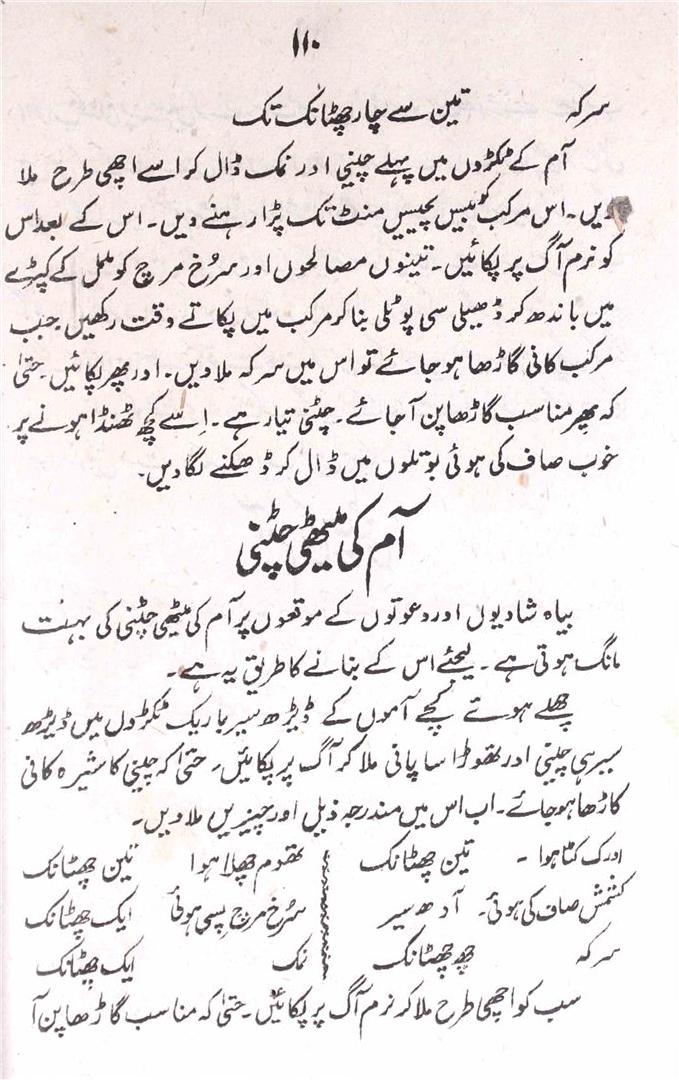 ۱۱۰
سرکہ تین سے چار چھٹانک تک
آم کے ٹکڑوں میں پہلے چینی اور نمک ڈال کو اسے اچھی طرح ملا
دیں۔ اس مرکب کو بیس پچیس منٹ تک پڑا رہنے دیں۔ اس کے بعد اس
کو نرم آگ پر پکائیں۔ تینوں مصالحوں اور سرُخ مرچ کو ململ کے کپڑے
میں باندھ کر ڈھیلی سی پوٹلی بنا کر مرکب میں پکاتے وقت رکھیں جب
مرکب کافی گاڑھا ہو جائے تو اس میں سرکہ ملا دیں۔ اور پھر پکائیں۔ حتیٰ
کہ پھر مناسب گاڑھا پن آ جائے۔ چٹنی تیار ہے۔ اِسے کچھ ٹھنڈا ہونے پر
خوب صاف کی ہوئی بوتلوں میں ڈال کر ڈھکنے لگا دیں۔
آم کی میٹھی چٹنی
بیاہ شادیوں اور دعوتوں کے موقعوں پر آم کی میٹھی چٹنی کی بہت
مانگ ہوتی ہے۔ لیجئے اس کے بنانے کا طریق یہ ہے۔
چھلے ہوئے کچے آموں کے ڈیڑھ سیر باریک ٹکڑوں میں ڈیڑھ
سیر ہی چینی اور تھوڑا سا پانی ملا کر آگ پر پکائیں۔ حتیٰ کہ چینی کا شیرہ کافی
گاڑھا ہو جائے۔ اب اس میں مندرجہ ذیل اور چیزیں ملا دیں۔
ادرک کٹا ہوا۔ تین چھٹانک تھوم چھلا ہوا تین چھٹانک
کشمش صاف کی ہوئی۔ آدھ سیر سرُخ مرچ پسی ہوئی ایک چھٹانک
سرکہ چھ چھٹانک نمک ایک چھٹانک
سب کو اچھی طرح ملا کر نرم آگ پر پکائیں۔ حتیٰ کہ مناسب گاڑھا پن آ